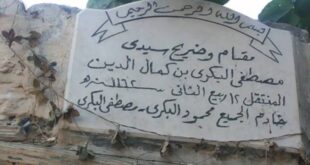 بسم الله الرحمن الرحيم
مقام وضريح سيدي
مصطفى البكري بن كمال الدين
المنتقل ١٢ ربيع الثاني ١١٦٢ هـ
خادم الجميع محمود البكري - مصطفى البكري